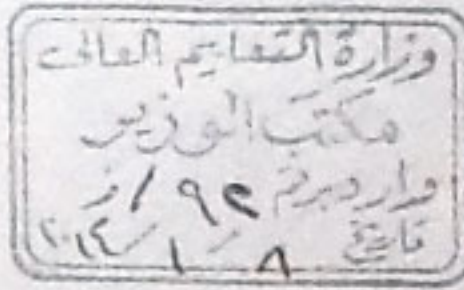 وزارة التعليم العالي
مكتب الوزير
وارد برقم ٩٢ / ز
تاريخ ٨ / ١ / ٢٠١٤